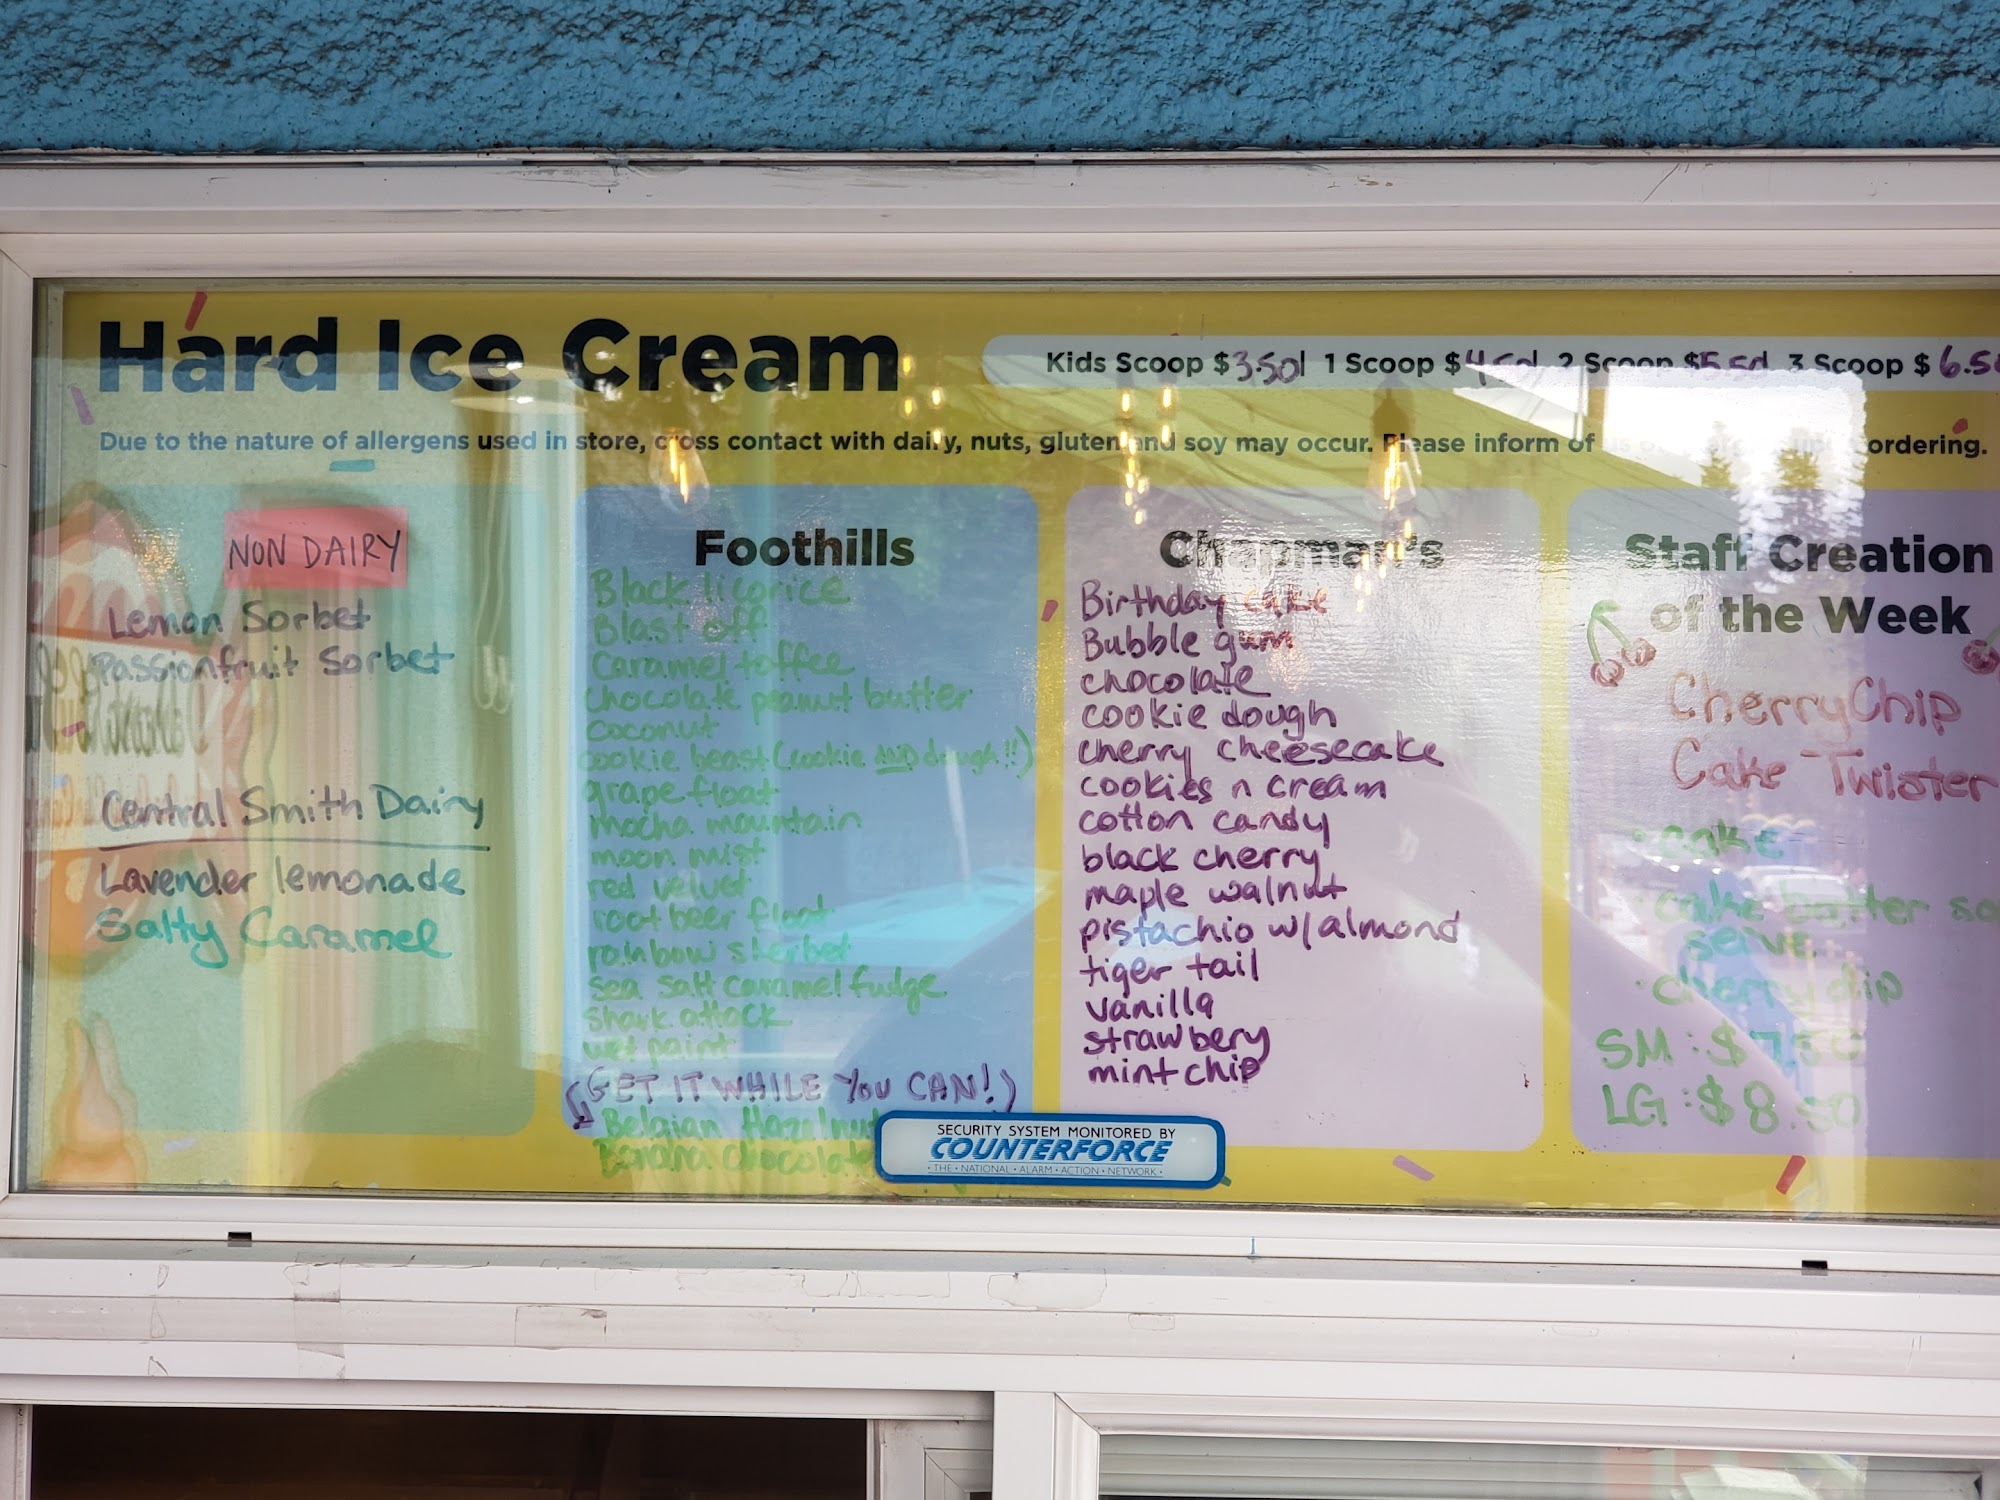 Hard Ice Cream
Kids Scoop $3.50 | 1 Scoop $4.50 | 2 Scoop $5.50 | 3 Scoop $6.5
Due to the nature of allergens used in store, cross contact with dairy, nuts, gluten and soy may occur. Please inform of us ordering.
NON DAIRY
Lemon Sorbet
Passionfruit Sorbet
Central Smith Dairy
Lavender lemonade
Salty Caramel
Foothills
Black licorice
Blast off
Caramel toffee
chocolate peanut butter
coconut
cookie beast (cookie AND dough!!)
grape float
mocha mountain
moon mist
red velvet
root beer float
rainbow sherbet
sea salt caramel fudge
shark attack
wet paint
(GET IT WHILE YOU CAN!)
Belgian Hazelnut
Banana chocolate
Chapman's
Birthday cake
Bubble gum
chocolate
cookie dough
cherry cheesecake
cookies n cream
cotton candy
black cherry
maple walnut
pistachio w/ almond
tiger tail
vanilla
strawbery
mint chip
Staff Creation
of the Week
Cherry Chip
Cake Twister
• cake
• cake batter so
serve
• cherry dip
SM : $7.50
LG : $8.50
SECURITY SYSTEM MONITORED BY
COUNTERFORCE
• THE • NATIONAL • ALARM • ACTION • NETWORK •